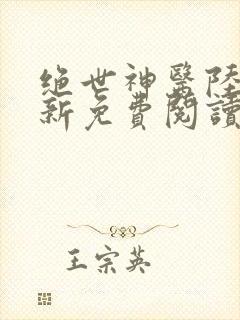 绝世神醫陸
新免費閱讀
王宗英